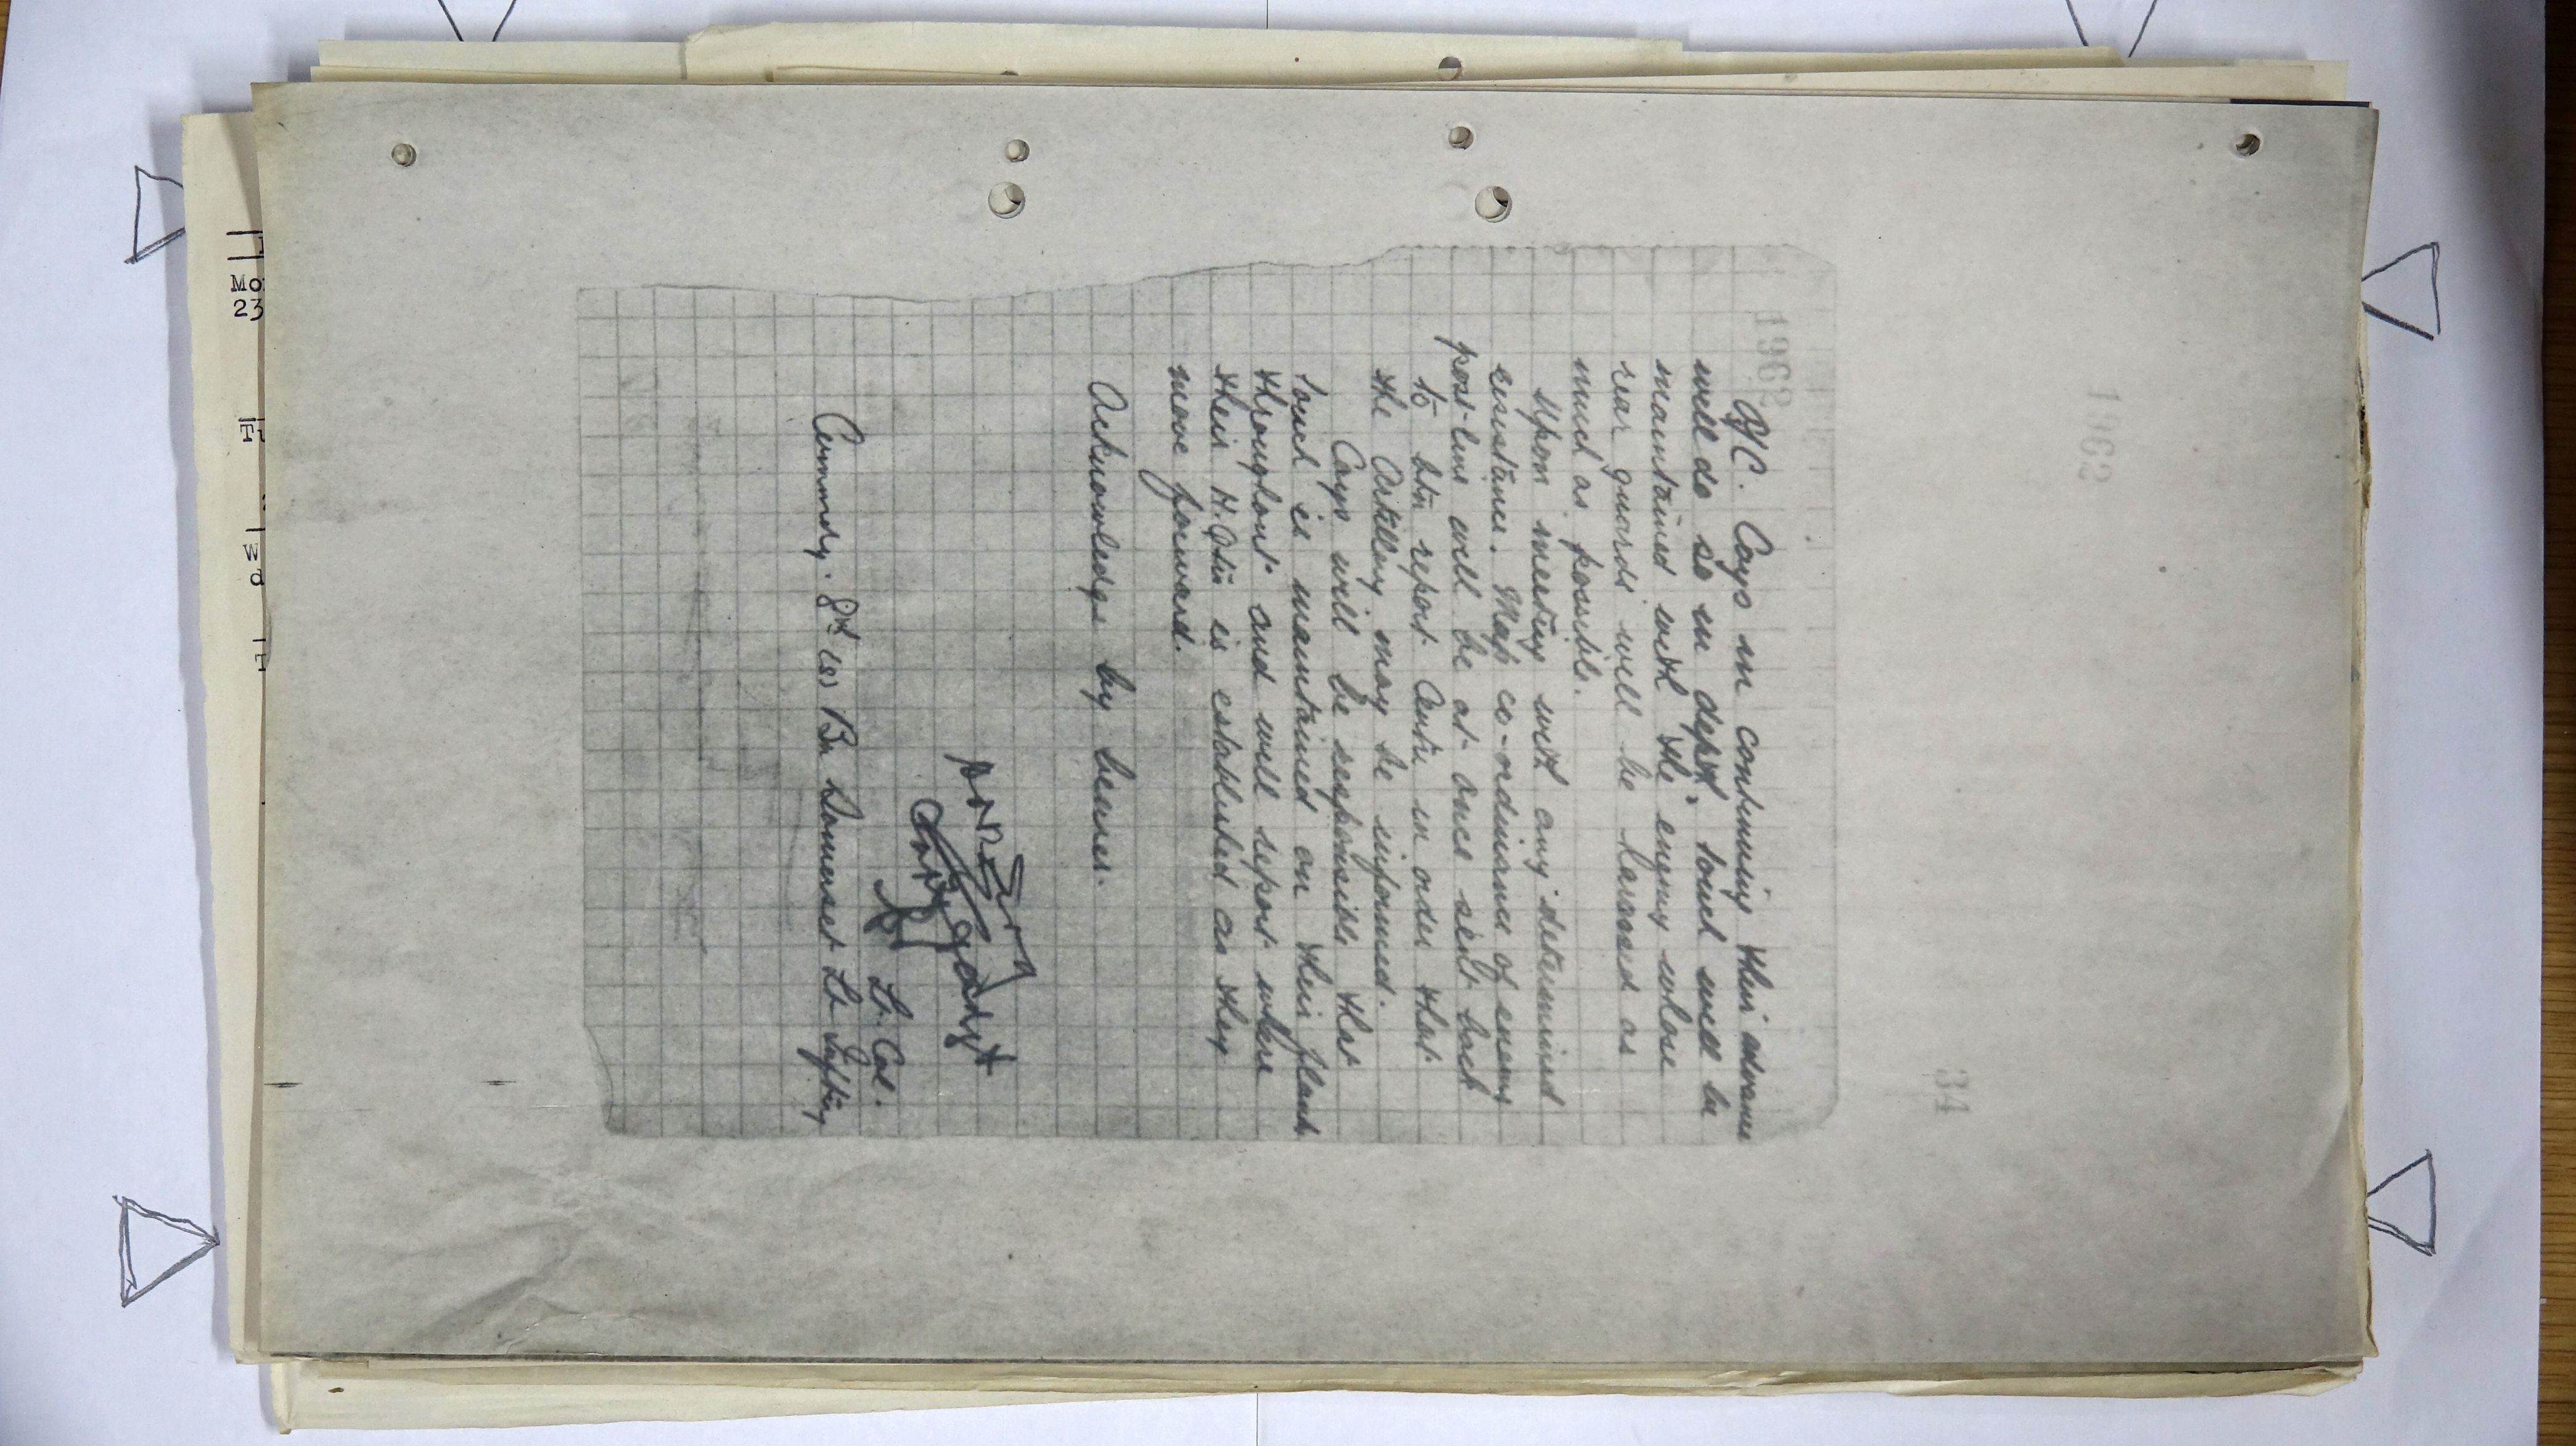 1962
34
1962
O/C. Coys in continuing their advance
well do so in depth. touch will be
maintained with the enemy whose
rear guards will be harassed as
much as possible.
Upon meeting with any determined
resistance. Map co-ordinance of enemy
post-line will be at once sent back
to btn report Centre in order that
the Artillery may be informed.
Coys will be responsible that
touch is maintained on their flanks
throughout and will report where
their H.Qtrs is established as they
move forward.
Acknowledge by bearer.
Lt. Col.
Commdg. 8th (s) Bn Somerset Lt Inftry
Mo
23
Tu
W
d